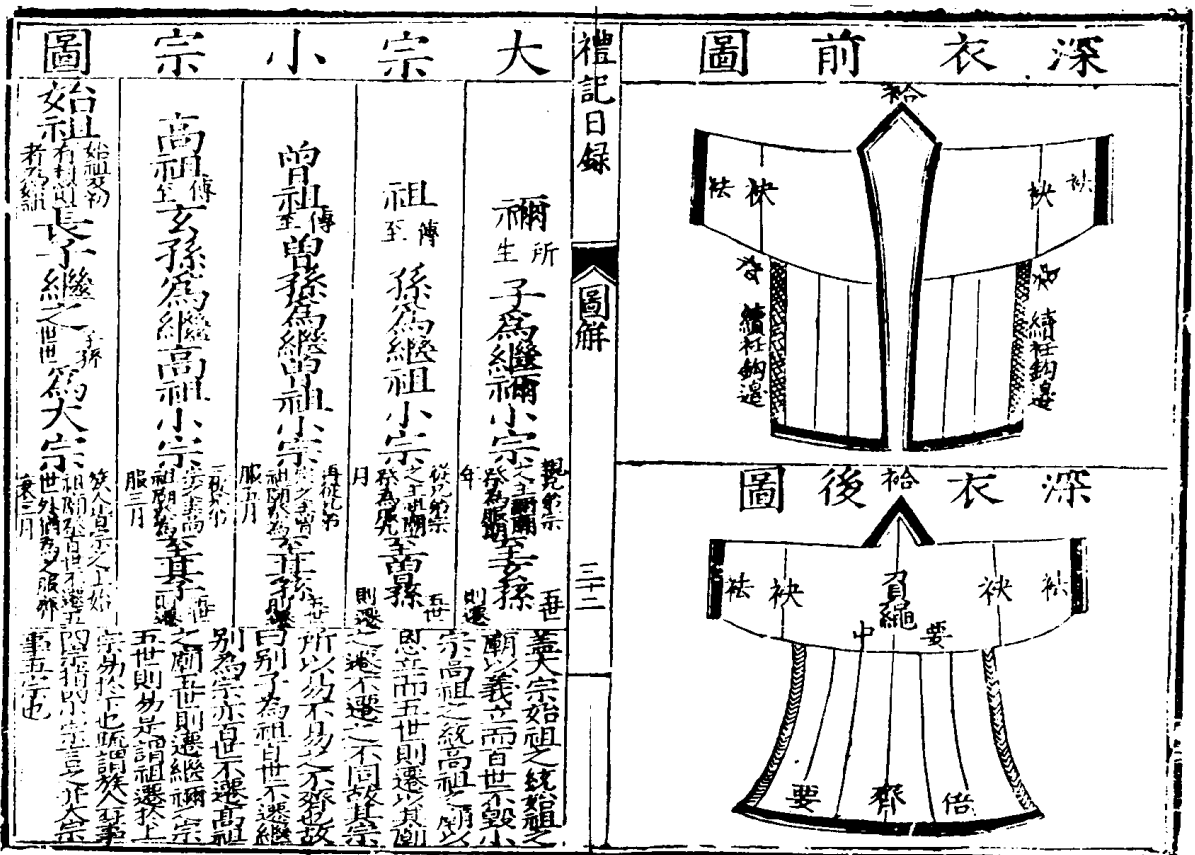 深衣前圖
袷
袪 袂
袂 袪
續衽鈎邊
續衽鈎邊
深衣後圖
袷
袪 袂
袂 袪
負繩
要中
倍齊要
禮記目録
圖解
三十二
大宗小宗圖
禰所生子為繼禰小宗
親兄弟宗之主禰廟
至玄孫五世則遷
祖傳至孫為繼祖小宗
從兄弟宗之主祖廟
至曾孫五世則遷
曾祖傳至曾孫為繼曾祖小宗
再從兄弟宗之主曾祖廟
服五月
至其孫五世則遷
高祖傳至玄孫為繼高祖小宗
三從兄弟宗之主高祖廟
服三月
至其子五世則遷
始祖
長子繼之子孫世世為大宗
族人皆宗之主始祖廟祭百世不遷五世外皆為之服齊衰三月
蓋大宗始祖之統始祖之
廟以義立而百世不毀小
宗高祖之統高祖之廟以
恩立而五世則遷以其廟
之遷不遷之不同故其宗
所以易不易之不齊也故
曰別子為祖百世不遷繼
別為宗亦百世不遷高祖
之廟五世則遷繼禰之宗
五世則易是謂祖遷於上
宗易於下也疏謂族人一身事
四宗指四小宗言之并大宗
事五宗也